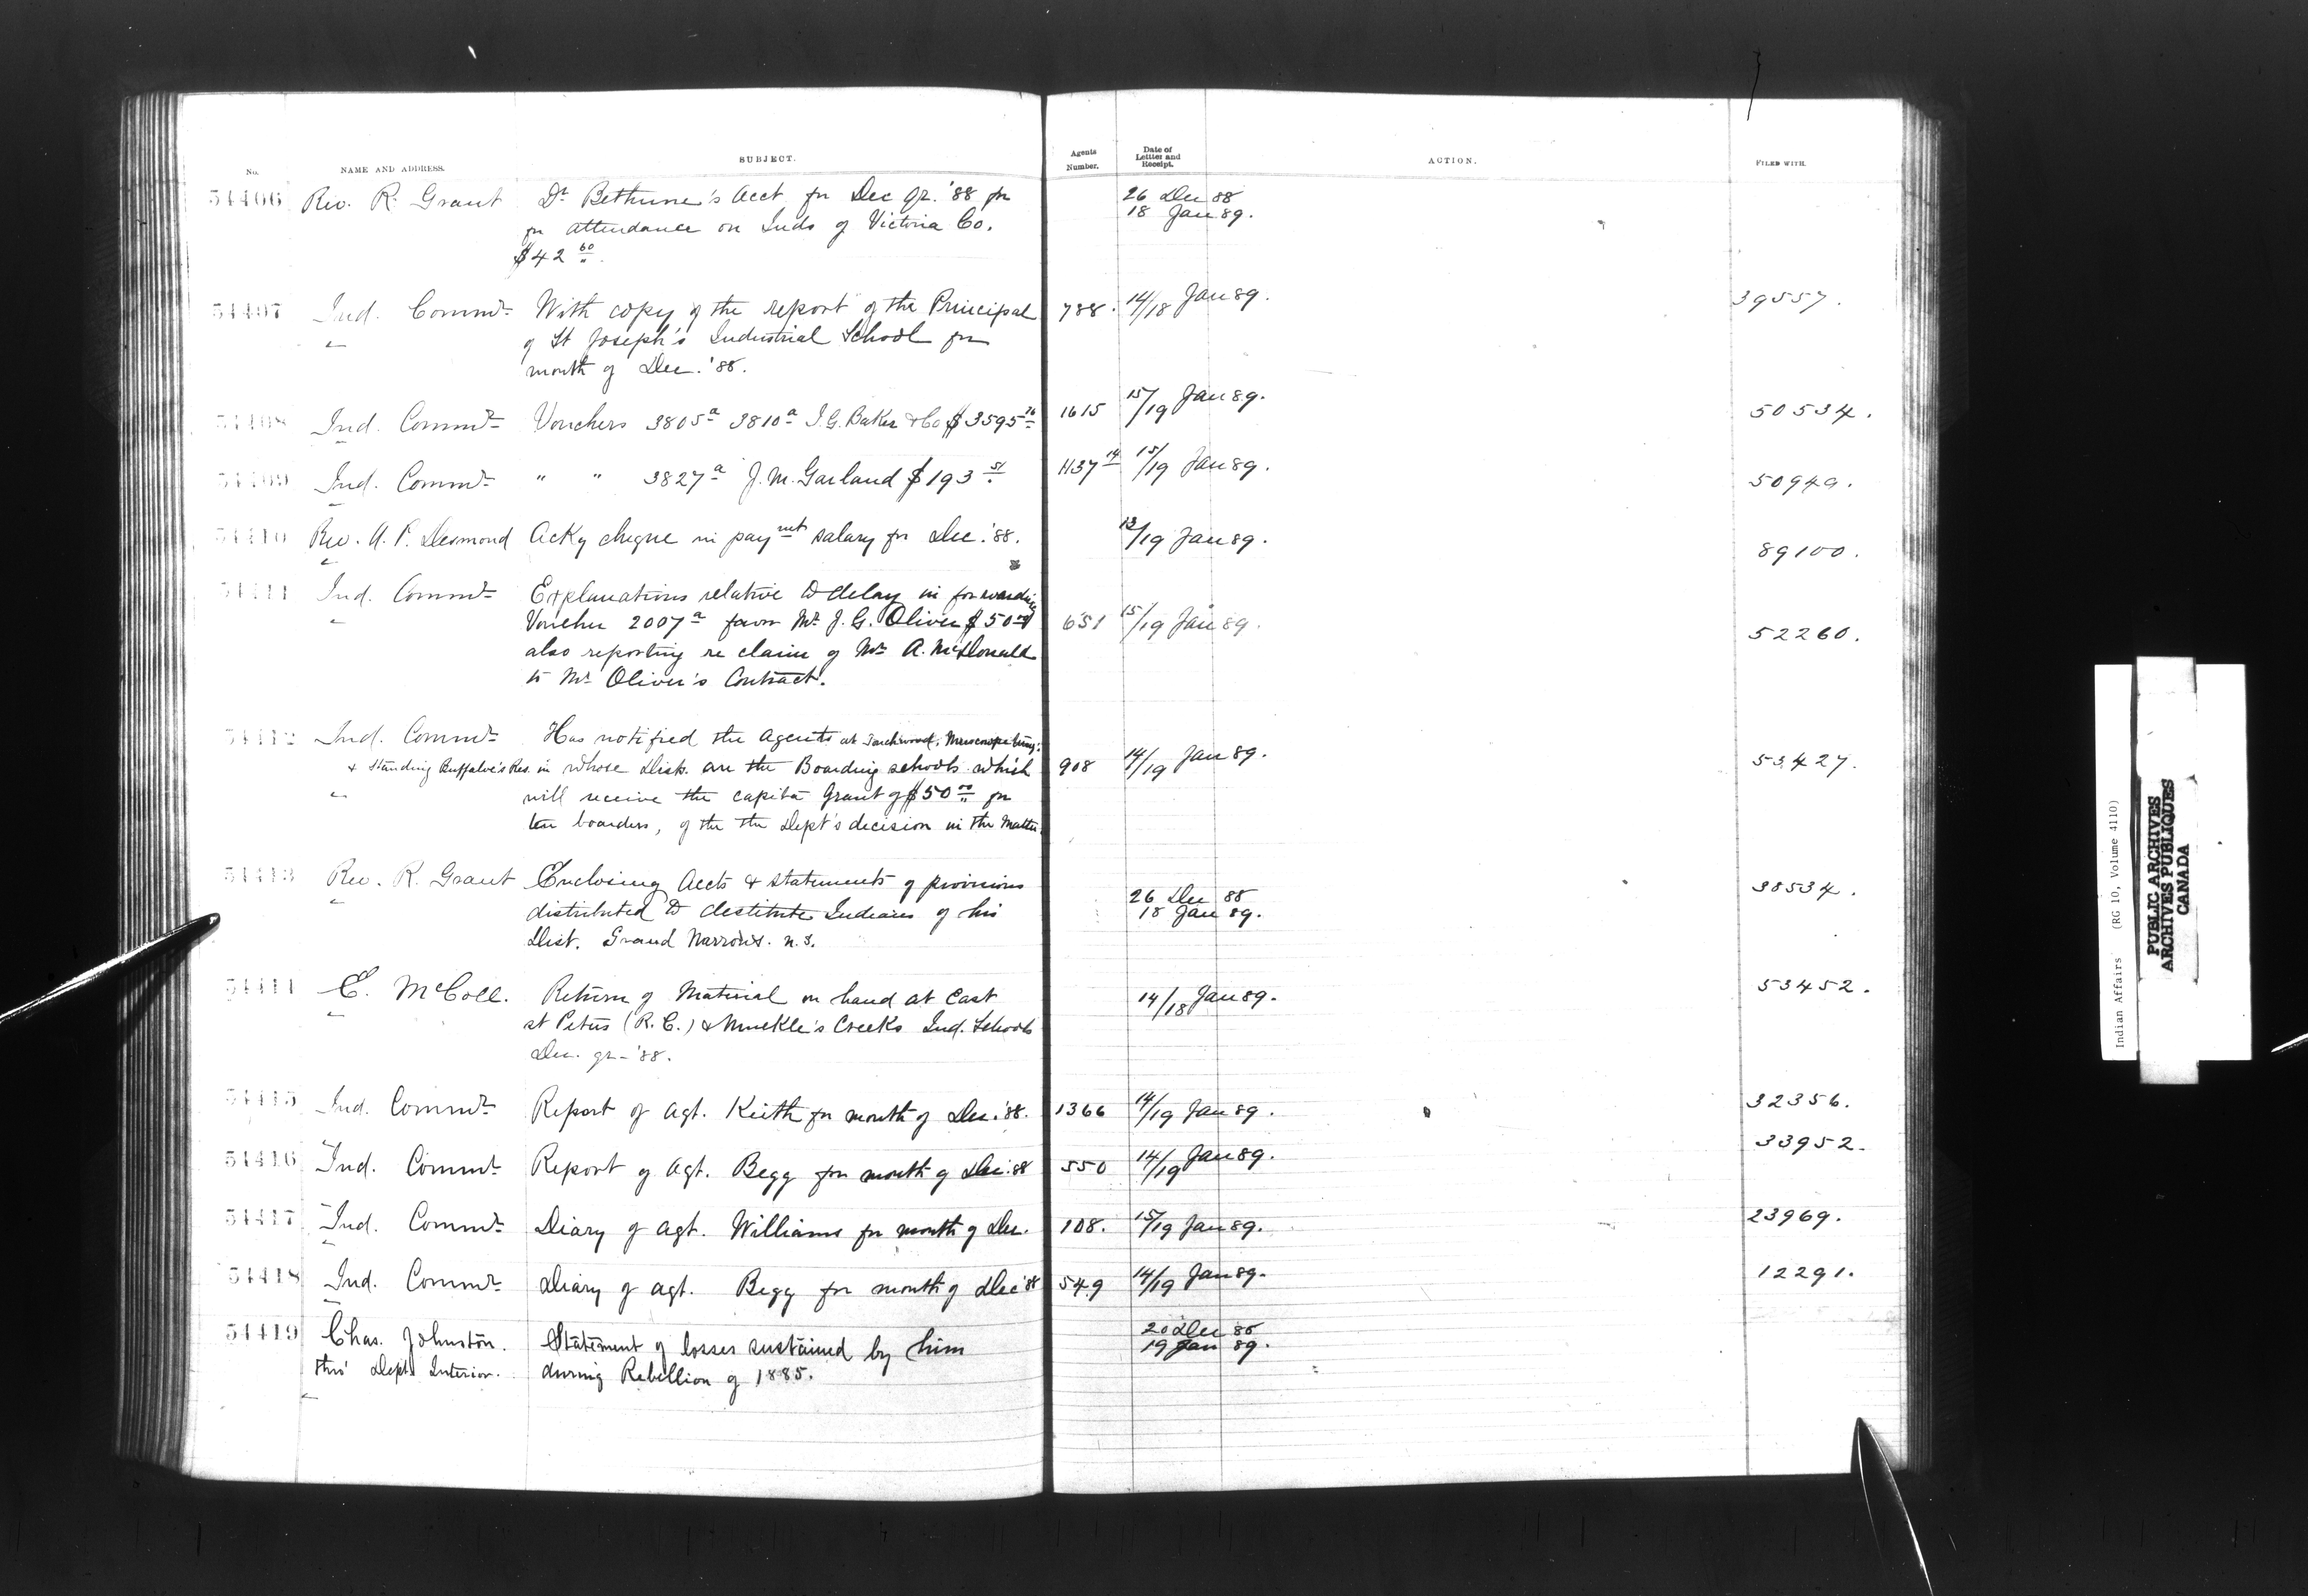 No. NAME AND ADDRESS. SUBJECT. Agents Number. Date of Letter and Receipt. ACTION. FILED WITH.
54406 Rev. R. Grant Dr Bethune's Acct. for Dec qr. '88 for 26 Dec 88
for attendance on Inds of Victoria Co. 18 Jan 89.
$42 60
54407 Ind. Commr With copy of the report of the Principal 788. 14/18 Jan 89. 39557.
of St Joseph's Industrial School for
month of Dec. '88.
54408 Ind. Commr Vouchers 3805a 3810a I.G. Baker & Co $3595 76 1615 15/19 Jan 89. 50534.
54409 Ind. Commr " " 3827a J.M. Garland $193 51 1137 14 15/19 Jan 89. 50949.
54410 Rev. A. P. Desmond Ackg cheque in paymnt salary for Dec. '88. 13/19 Jan 89. 89100.
54411 Ind. Commr Explanations relative to delay in forwarding
Voucher 2007a favor Mr J. G. Oliver $50 651 15/19 Jan 89. 52260.
also reporting re claim of Mr A. McDonald
to Mr Oliver's Contract.
54412 Ind. Commr Has notified the Agents at Touchwood, Muscowpetung:
& Standing Buffaloe's Res. in whose Dist. are the Boarding schools which 908 14/19 Jan 89. 53427.
will receive the capita Grant of $50 00 for
ten boarders, of the the Dept's decision in the Matter.
54413 Rev. R. Grant Enclosing Accts & statements of provisions 38534.
distributed to destitute Indians of his 26 Dec 88
Dist. Grand Narrows. N.S. 18 Jan 89.
54414 E. McColl. Return of Material on hand at East 14/18 Jan 89. 53452.
St Peters (R.C.) & Muckle's Creeks Ind. Schools
Dec. qr - '88.
54415 Ind. Commr Report of Agt. Keith for month of Dec. '88. 1366 14/19 Jan 89. 32356.
54416 Ind. Commr Report of Agt. Begg for month of Dec. '88 550 14/19 Jan 89. 33952.
54417 Ind. Commr Diary of Agt. Williams for month of Dec. 108. 15/19 Jan 89. 23969.
54418 Ind. Commr Diary of Agt. Begg for month of Dec '88 549 14/19 Jan 89. 12291.
54419 Chas. Johnston. Statement of losses sustained by him 20 Dec 88
thro' Dept Interior. during Rebellion of 1885. 19 Jan 89.
Indian Affairs (RG 10, Volume 4110)
PUBLIC ARCHIVES
ARCHIVES PUBLIQUES
CANADA